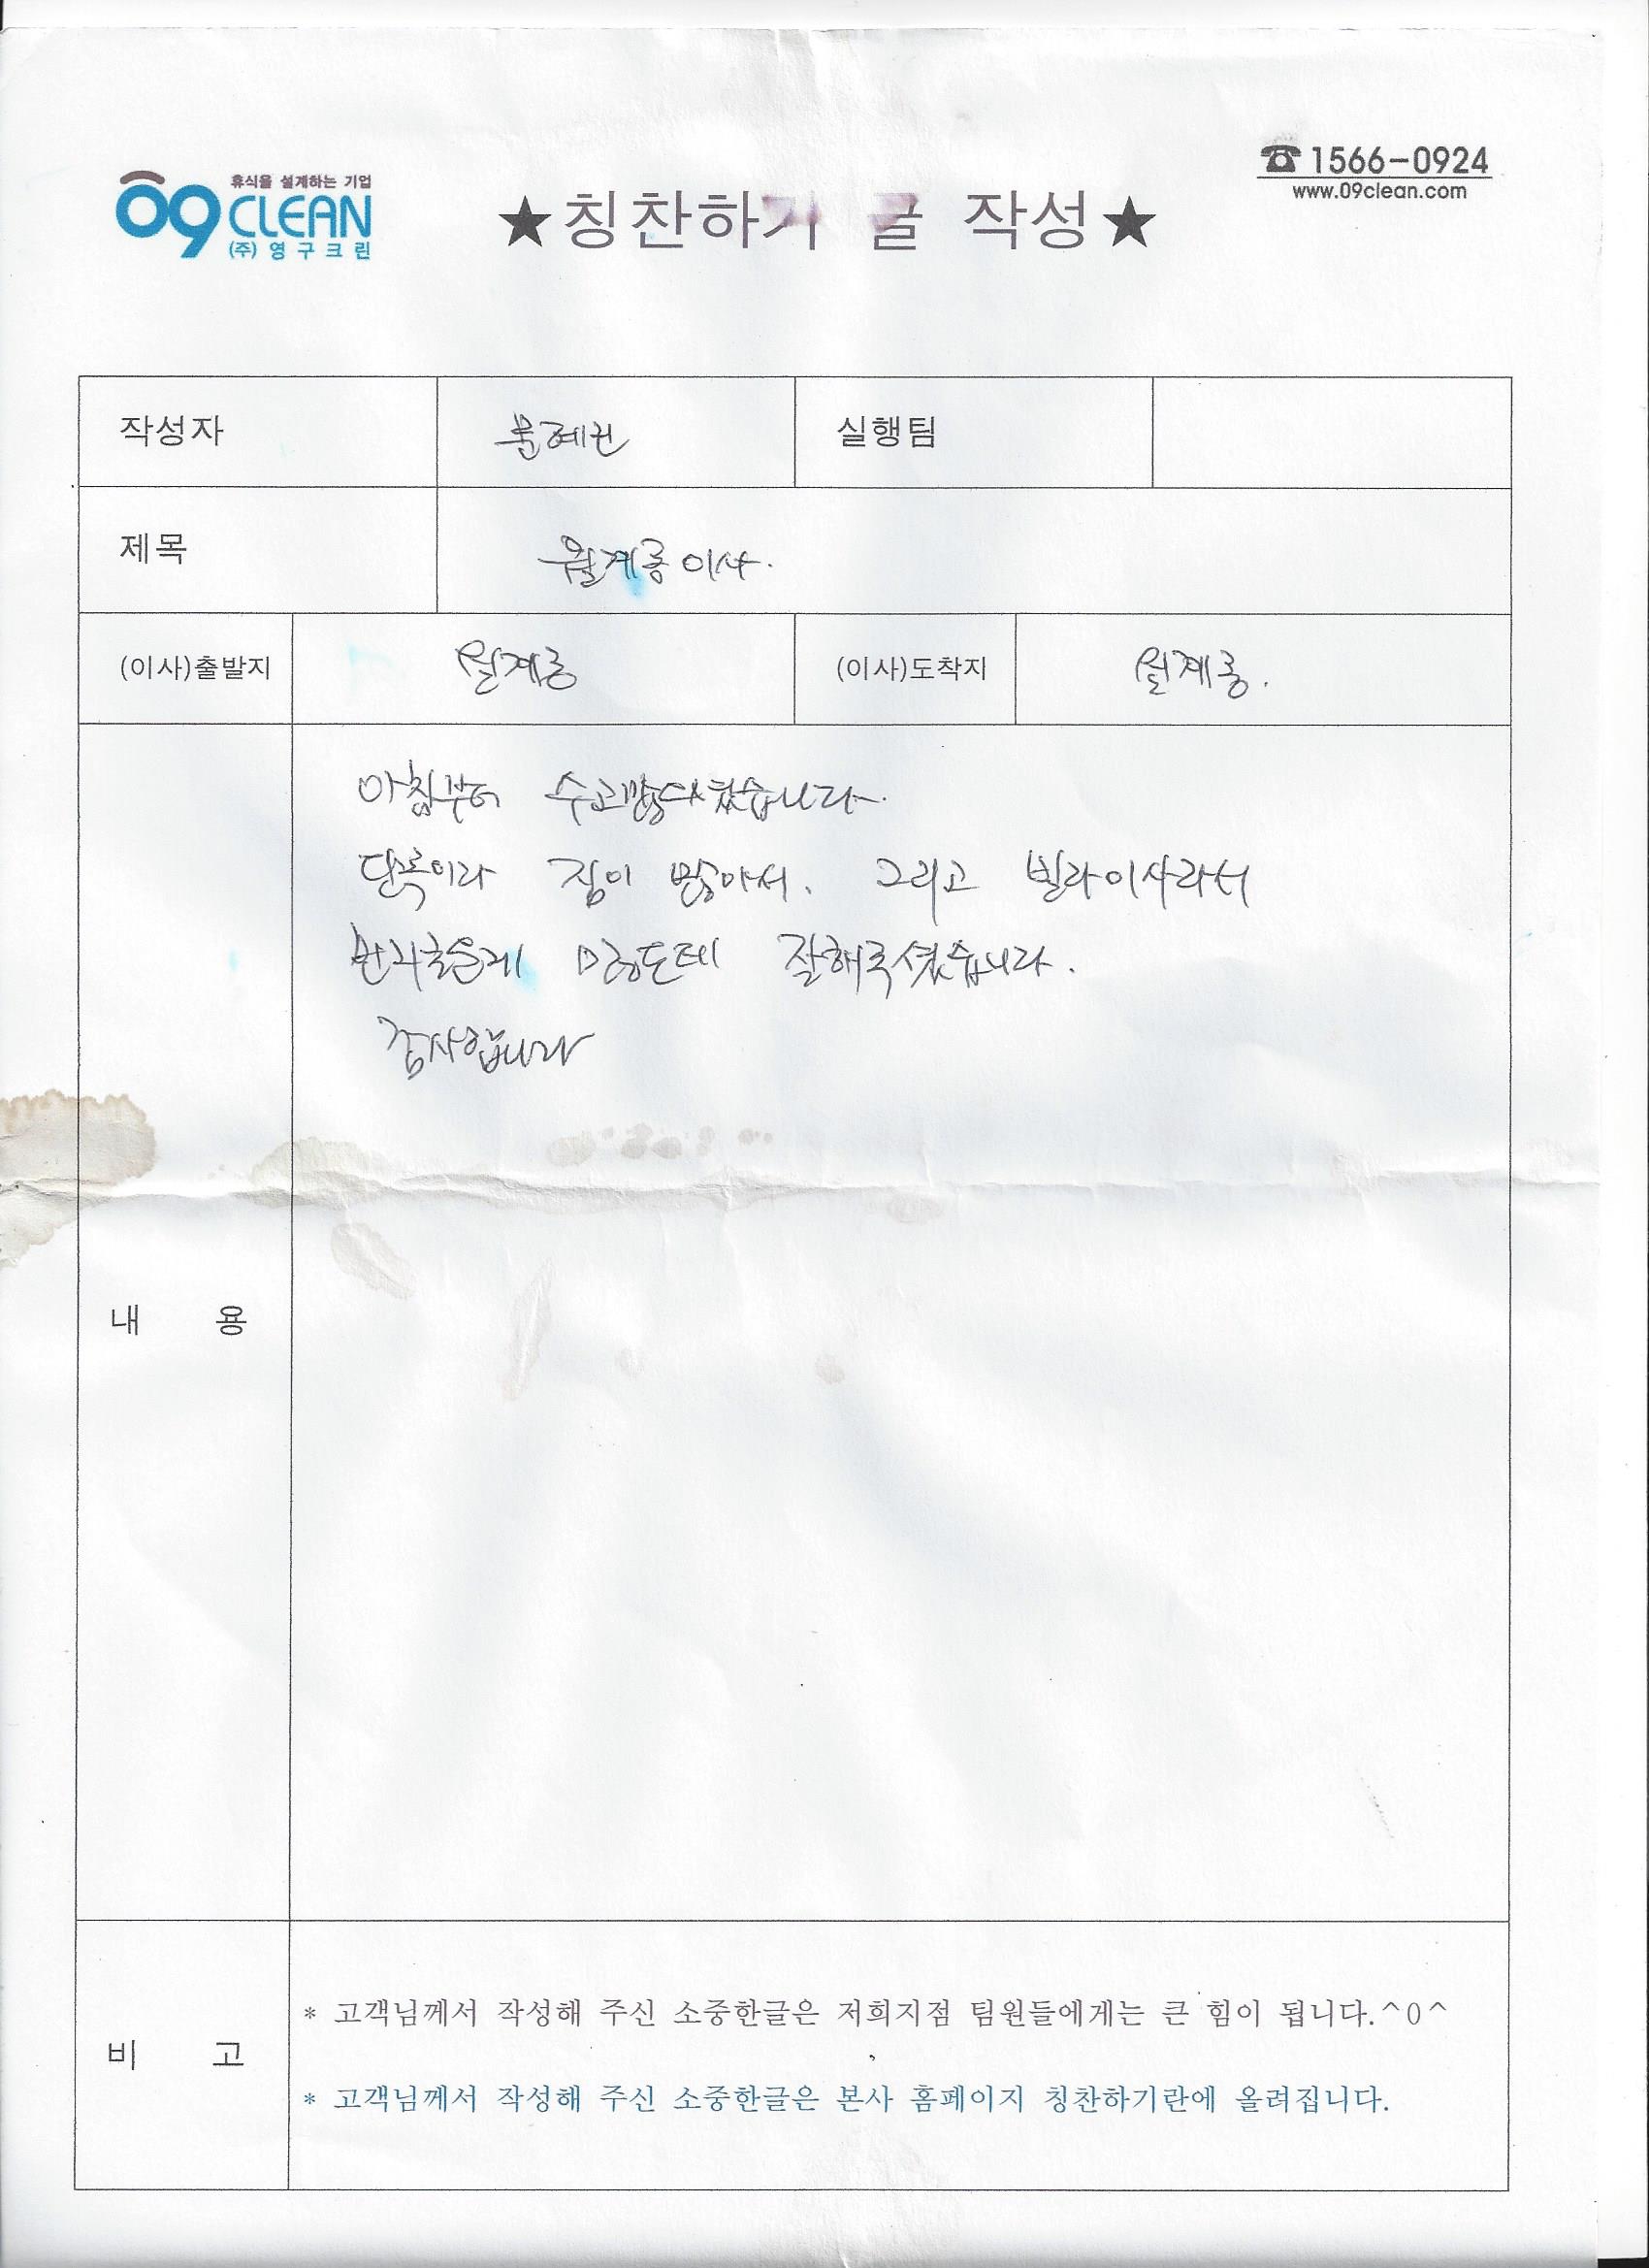 휴식을 설계하는 기업
09 CLEAN
(주) 영구크린
★칭찬하기 글 작성★
☎ 1566-0924
www.09clean.com
작성자 문혜진 실행팀
제목 월계동 이사.
(이사)출발지 월계동 (이사)도착지 월계동.
아침부터 수고많으셨습니다.
단독이라 짐이 많아서. 그리고 빌라이사라서
잘해주셨습니다.
감사합니다
내 용
비 고
* 고객님께서 작성해 주신 소중한글은 저희지점 팀원들에게는 큰 힘이 됩니다.^0^
* 고객님께서 작성해 주신 소중한글은 본사 홈페이지 칭찬하기란에 올려집니다.